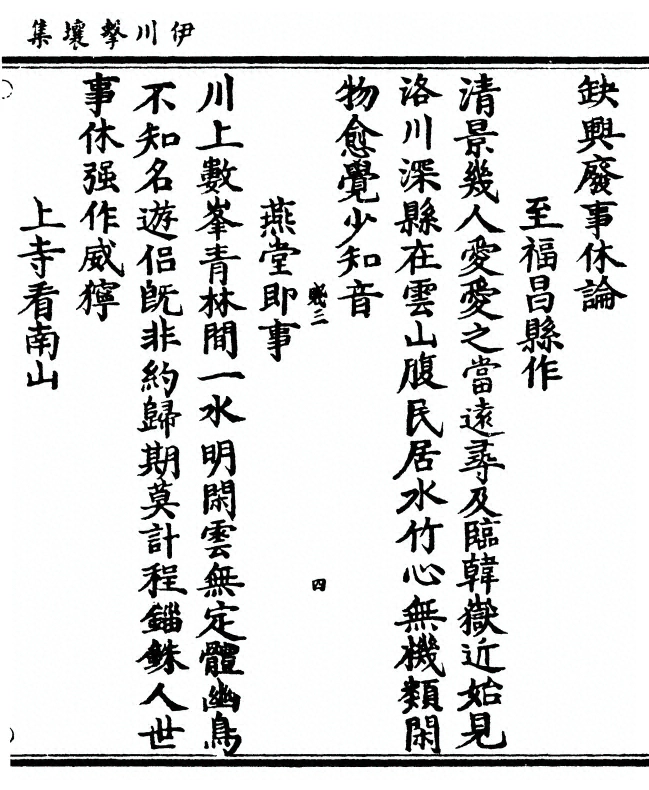 伊川擊壤集
缺興廢事休論
至福昌縣作
清景幾人愛愛之當遠尋及臨韓嶽近始見
洛川深縣在雲山腹民居水竹心無機類閑
物愈覺少知音
賤二
四
燕堂即事
川上數峯青林間一水明閑雲無定體幽鳥
不知名遊侶既非約歸期莫計程錙銖人世
事休强作威獰
上寺看南山